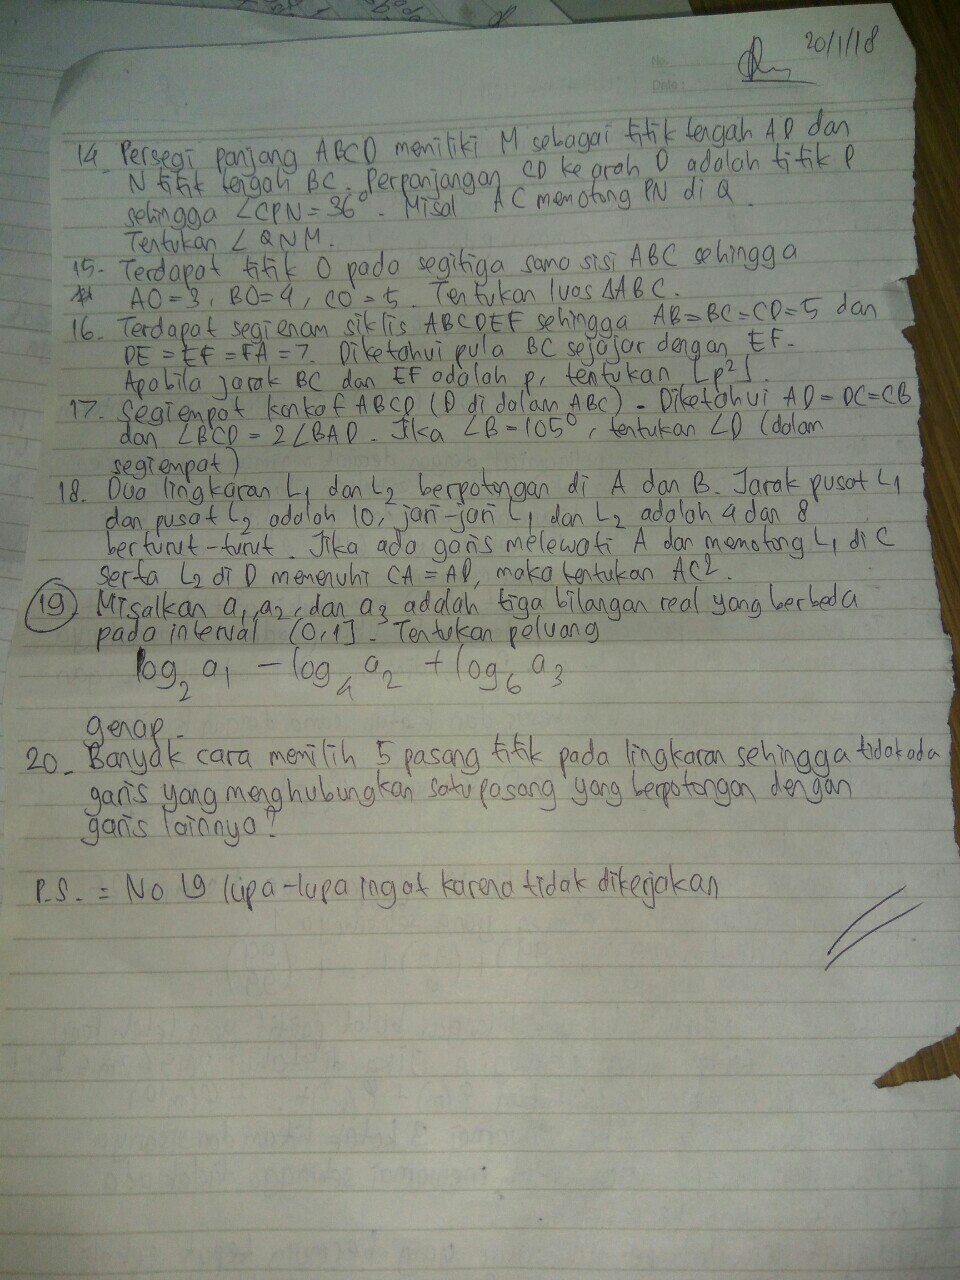 20/1/18
No.
Date :
14. Persegi panjang ABCD memiliki M sebagai titik tengah AD dan
N titik tengah BC. Perpanjangan CD ke arah D adalah titik P
sehingga ∠CPN = 36°. Misal AC memotong PN di Q.
Tentukan ∠QNM.
15. Terdapat titik O pada segitiga sama sisi ABC sehingga
AO = 3, BO = 4, CO = 5. Tentukan luas ΔABC.
16. Terdapat segienam siklis ABCDEF sehingga AB = BC = CD = 5 dan
DE = EF = FA = 7. Diketahui pula BC sejajar dengan EF.
Apabila jarak BC dan EF adalah p, tentukan ⌊p²⌋.
17. Segiempat konkaf ABCD (D di dalam ABC). Diketahui AD = DC = CB
dan ∠BCD = 2∠BAD. Jika ∠B = 105°, tentukan ∠D (dalam
segiempat)
18. Dua lingkaran L₁ dan L₂ berpotongan di A dan B. Jarak pusat L₁
dan pusat L₂ adalah 10, jari-jari L₁ dan L₂ adalah 4 dan 8
berturut-turut. Jika ada garis melewati A dan memotong L₁ di C
serta L₂ di D memenuhi CA = AD, maka tentukan AC².
19 Misalkan a₁, a₂, dan a₃ adalah tiga bilangan real yang berbeda
pada interval (0,1]. Tentukan peluang
log₂ a₁ - log₄ a₂ + log₆ a₃
genap.
20. Banyak cara memilih 5 pasang titik pada lingkaran sehingga tidak ada
garis yang menghubungkan satu pasang yang berpotongan dengan
garis lainnya?
P.S. = No 19 lupa-lupa ingat karena tidak dikerjakan